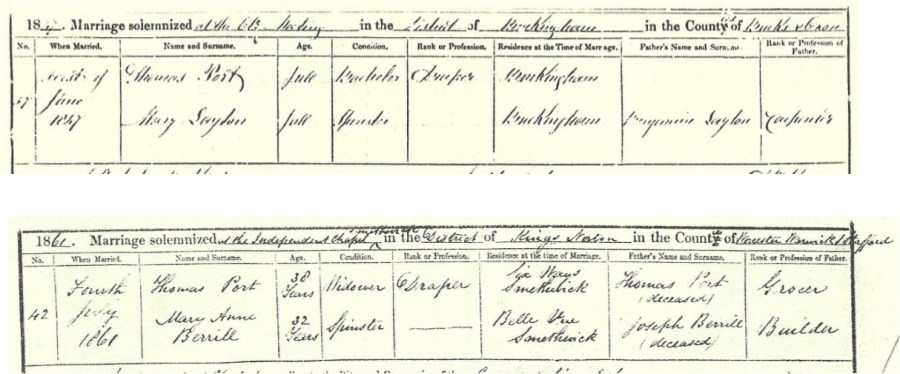 Marriage solemnized at the in the District of Buckingham in the Counties of Bucks & Oxon
No. When Married. Name and Surname. Age. Condition. Rank or Profession. Residence at the Time of Marriage. Father's Name and Surname. Rank or Profession of Father.
of Thomas Post full Bachelor Draper Buckingham
57 June
1847 Mary Full Spinster Buckingham Benjamin Carpenter
1861. Marriage solemnized at the Independent Chapel Smethwick in the District of Kings Norton in the Counties of Worcester Warwick & Stafford
No. When Married. Name and Surname. Age. Condition. Rank or Profession. Residence at the time of Marriage. Father's Name and Surname. Rank or Profession of Father.
42 Fourth July 1861 Thomas Port 38 Years Widower Draper Six Ways Smethwick Thomas Port (deceased) Grocer
Mary Anne Berrill 32 Years Spinster Belle Vue Smethwick Joseph Berrill (deceased) Builder